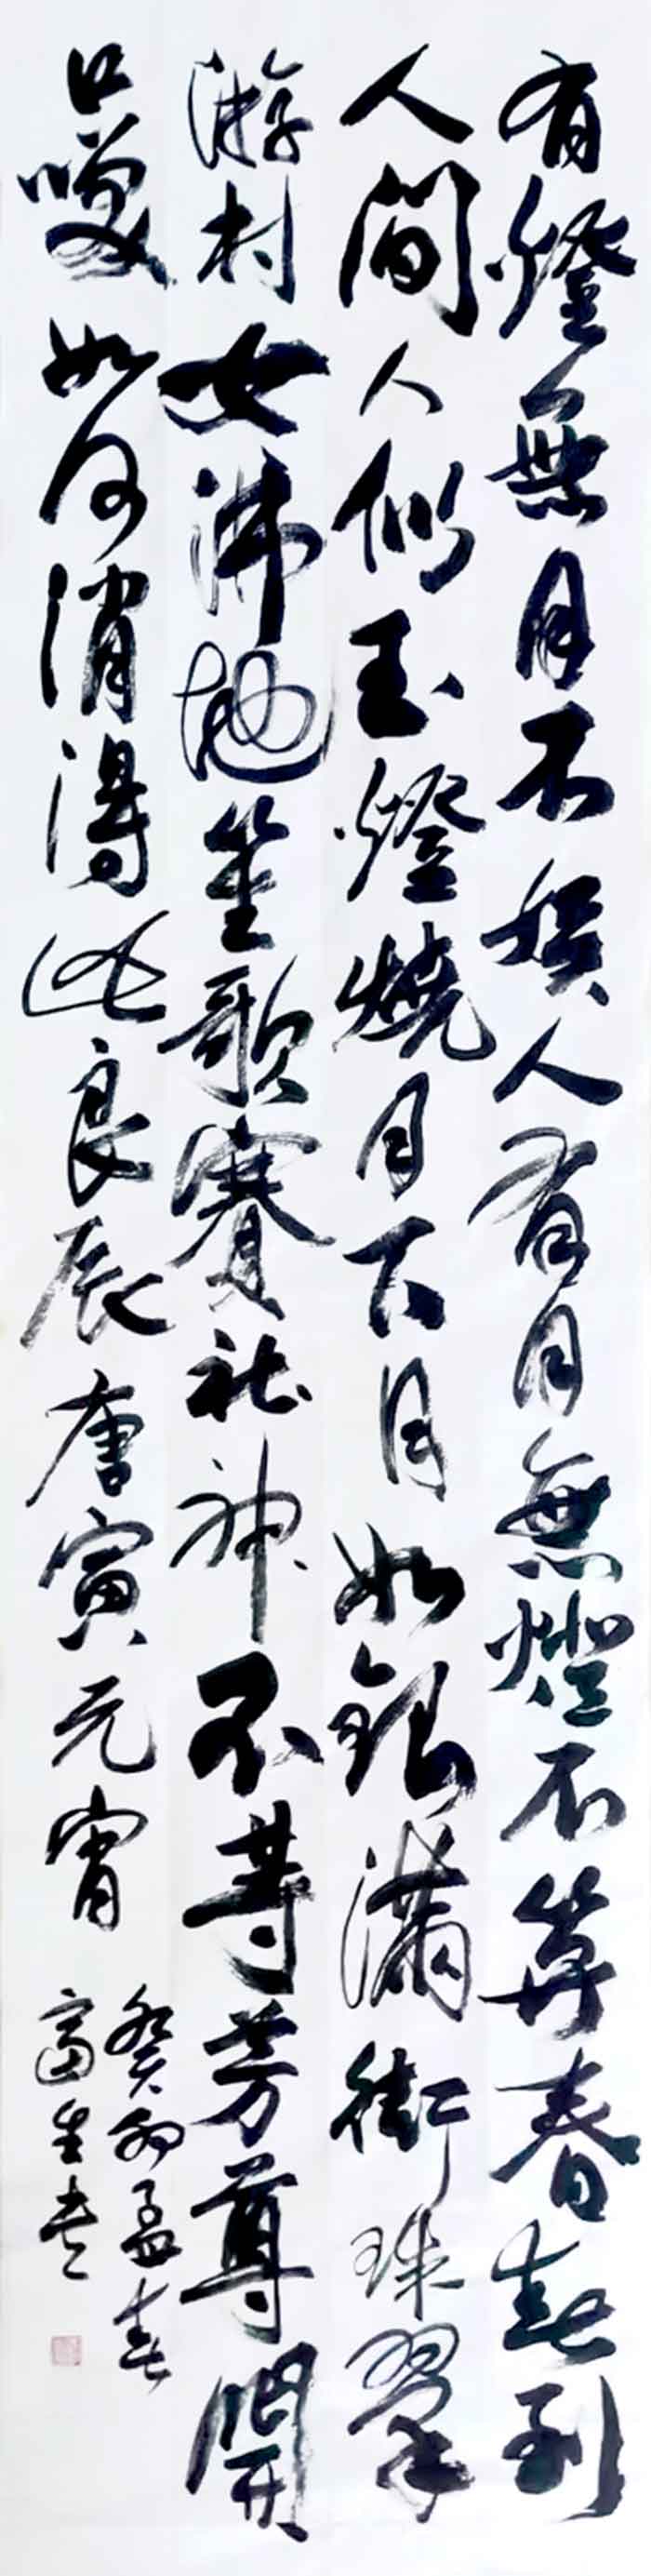 有燈無月不娛人有月無燈不算春春到
人間人似玉燈燒月下月如銀滿街珠翠
游村女沸地笙歌賽社神不等芳尊開
口笑如何消得此良辰唐寅元宵
癸卯孟春
富生书